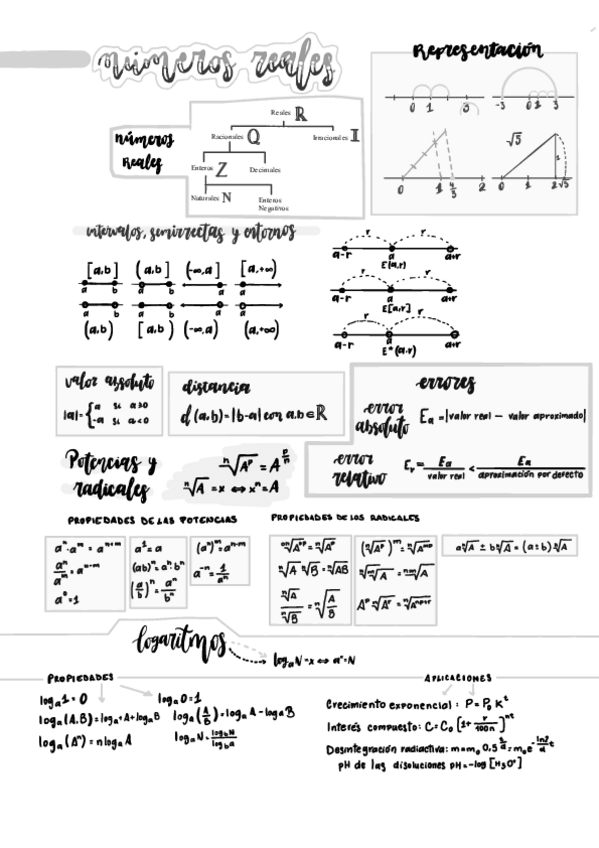 números reales
Representación
números
Reales
Reales ℝ
Racionales Q
Irracionales I
Enteros Z
Decimales
Naturales N
Enteros
Negativos
0 1 3
-3 0 1 3
0 1 2
√5
1
0 1 2 √5
intervalos, semirrectas y entornos
[a,b] (a,b] (-∞,a] [a,+∞)
a b a b a a
a b a b a a
(a,b) [a,b) (-∞,a) (a,+∞)
r r
a-r a a+r
E(a,r)
r r
a-r a a+r
E[a,r]
r r
a-r a a+r
E*(a,r)
valor absoluto
|a|={ a si a≥0
-a si a<0
distancia
d(a,b)=|b-a| con a,b∈ℝ
errores
error
absoluto
Ea=|valor real - valor aproximado|
error
relativo
Er = Ea/valor real < Ea/aproximación por defecto
Potencias y
radicales
ⁿ√Aᵖ = A^(p/n)
ⁿ√A = x ⟺ xⁿ=A
PROPIEDADES DE LAS POTENCIAS
aⁿ·aᵐ = aⁿ⁺ᵐ
aⁿ/aᵐ = aⁿ⁻ᵐ
a⁰=1
a¹=a
(ab)ⁿ=aⁿ·bⁿ
(a/b)ⁿ=aⁿ/bⁿ
(aⁿ)ᵐ=aⁿ·ᵐ
a⁻ⁿ=1/aⁿ
PROPIEDADES DE LOS RADICALES
ⁿ√A ⁿ√B=ⁿ√AB
ⁿ√A/ⁿ√B=ⁿ√(A/B)
a ⁿ√A ± b ⁿ√A=(a±b) ⁿ√A
logaritmos
logₐN=x⟺aˣ=N
PROPIEDADES
logₐ1=0
logₐ(A.B)=logₐA+logₐB
logₐ(Aⁿ)=nlogₐA
logₐ(A/B)=logₐA-logₐB
logₐN=log_bN/log_ba
APLICACIONES
Crecimiento exponencial: P=P₀Kᵗ
Interés compuesto: C=C₀[1+r/100n]ⁿᵗ
Desintegración radiactiva: m=m₀0,5
pH de las disoluciones pH=-log[H₃O⁺]